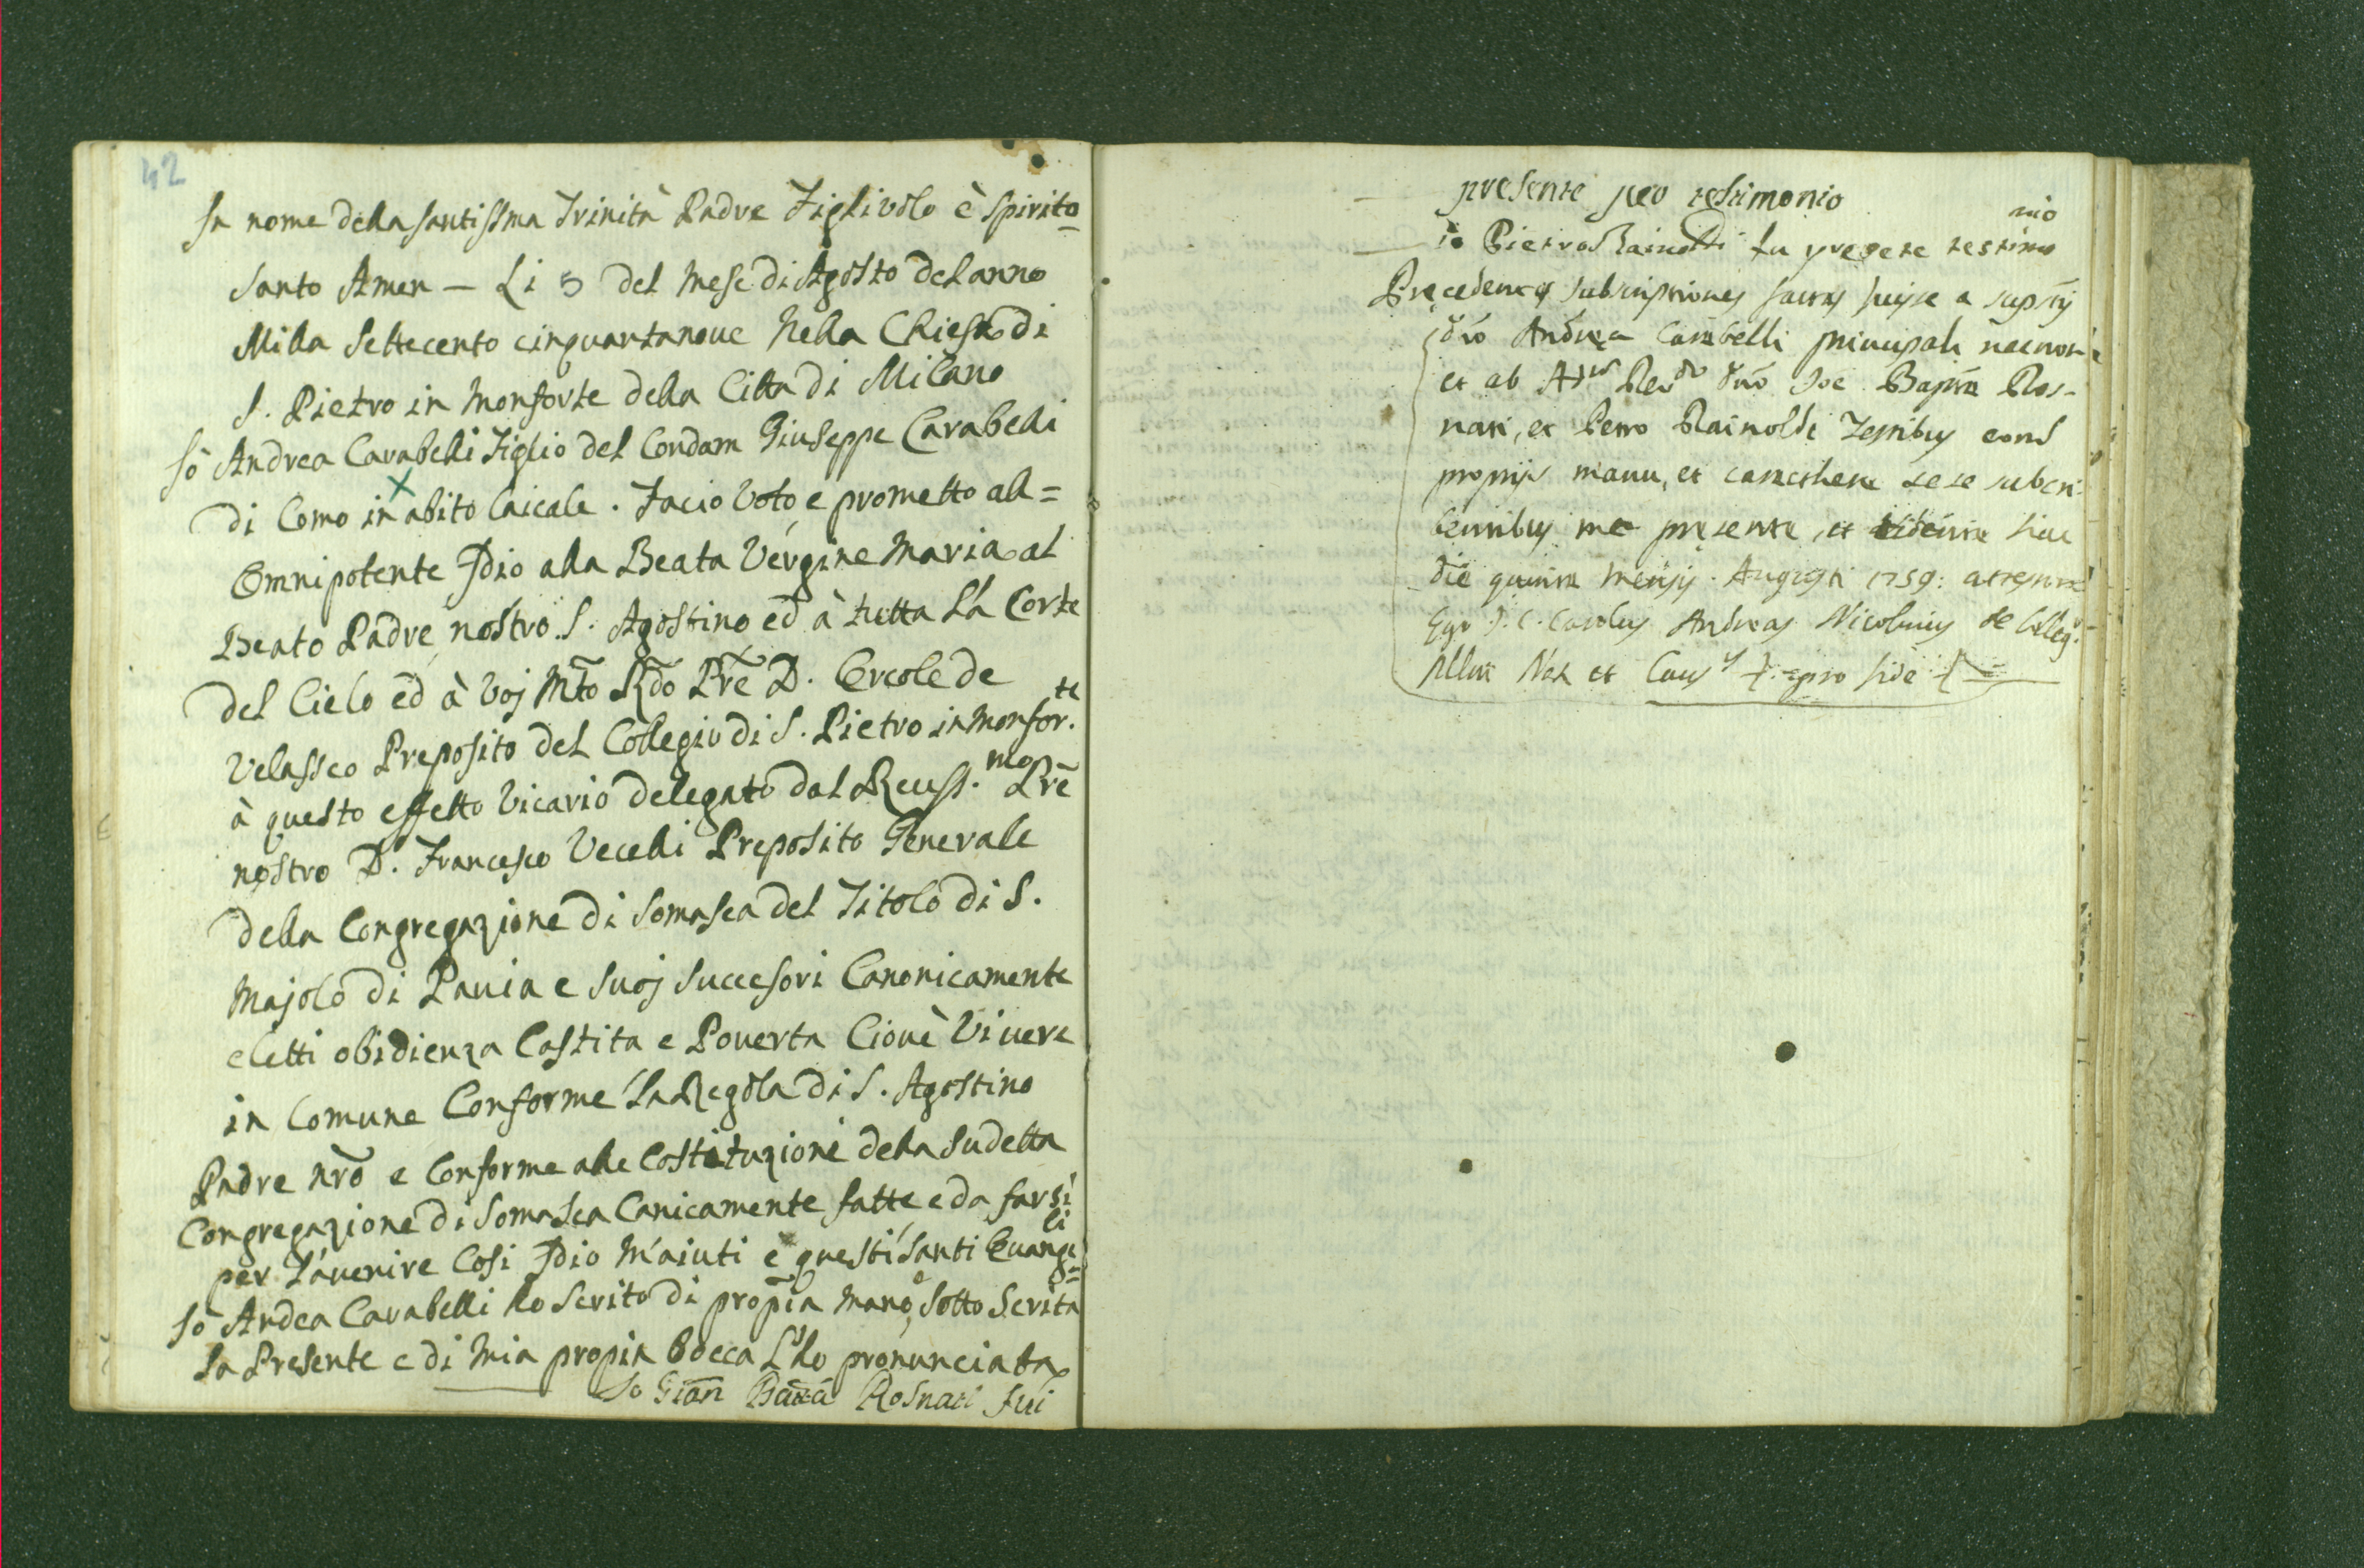 42
In nome della santissma Trinità Padre Figlivolo è Spirito
santo Amen — Li 5 del Mese di Agosto del anno
Milla Settecento cinquantanoue Nella Chiesa di
S. Pietro in Monforte della Citta di Milano
Io Andrea Carabelli Figlio del Condam Giuseppe Carabelli
di Como in abito laicale. Facio Voto, e prometto all=
Omnipotente Idio alla Beata Vergine Maria al
Beato Padre nostro S. Agostino ed à tutta La Corte
del Cielo ed à Voj Mto Rdo Pre D. Ercole de
Velasseo Preposito del Collegio di S. Pietro in Monfor.te
à questo effetto Vicario delegato dal Reuss.mo Pre
nostro D. Francesco Vecelli Preposito Generale
della Congregazione di Somasca del Titolo di S.
Majolo di Pauia e suoj Succesori Canonicamente
eletti obidienza Castita e Pouerta Ciouè Viuere
in Comune Conforme La Regola di S. Agostino
Padre nro e Conforme alle Costituzioni della Sudetta
Congregazione di Somasca Canicamente fatte e da farsi
per L'auenire Cosi Idio M'aiuti è questi Santi Euangeli
Io Andea Carabelli ho Scrito di propia mano, è sotto Scrita
la Presente e di Mia propia bocca L'ho pronunciata
Io Gian Batta Rosnati fui
presente per testimonio
io Pietro Rainoldi fu presete testimonio
Precedentes subscriptiones factas fuisse a suptis
dno Andrea Carabelli principali
et ab Rdo dno Joe Bapta Ros-
nati, et Petro Rainoldi Testibus
propriis manu, et caracthere sese subcri-
bentibus me presente, et vidente hac
die quinta mensis Augusti 1759: attestor
Ego J. C. Carolus Andreas Nicolinus de Colleg.
Not et Caus pro fide